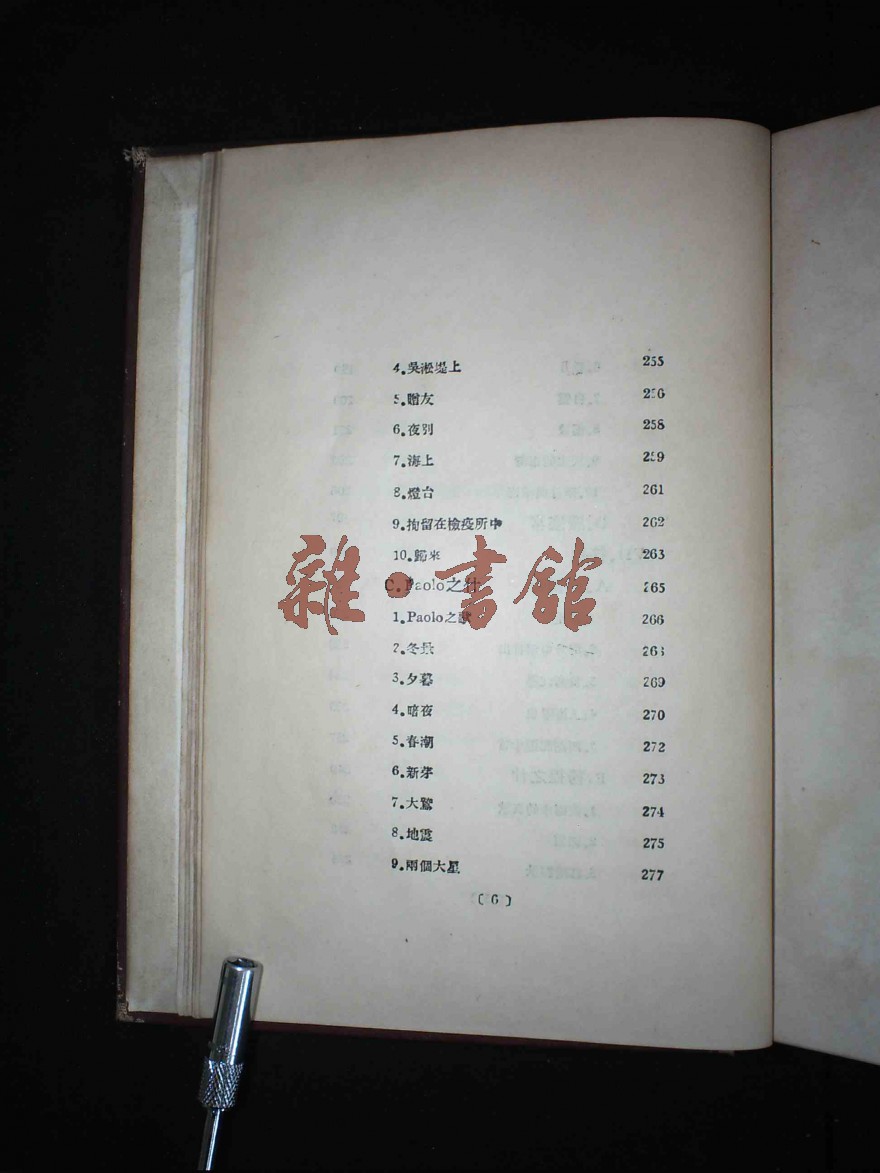 4.吳淞堤上 255
5.贈友 256
6.夜别 258
7.海上 259
8.燈台 261
9.拘留在檢疫所中 262
10.歸來 263
C.Paolo之什 265
1.Paolo之歌 266
2.冬景 268
3.夕暮 269
4.暗夜 270
5.春潮 272
6.新芽 273
7.大鷲 274
8.地震 275
9.兩個大星 277
〔6〕
雜·書館